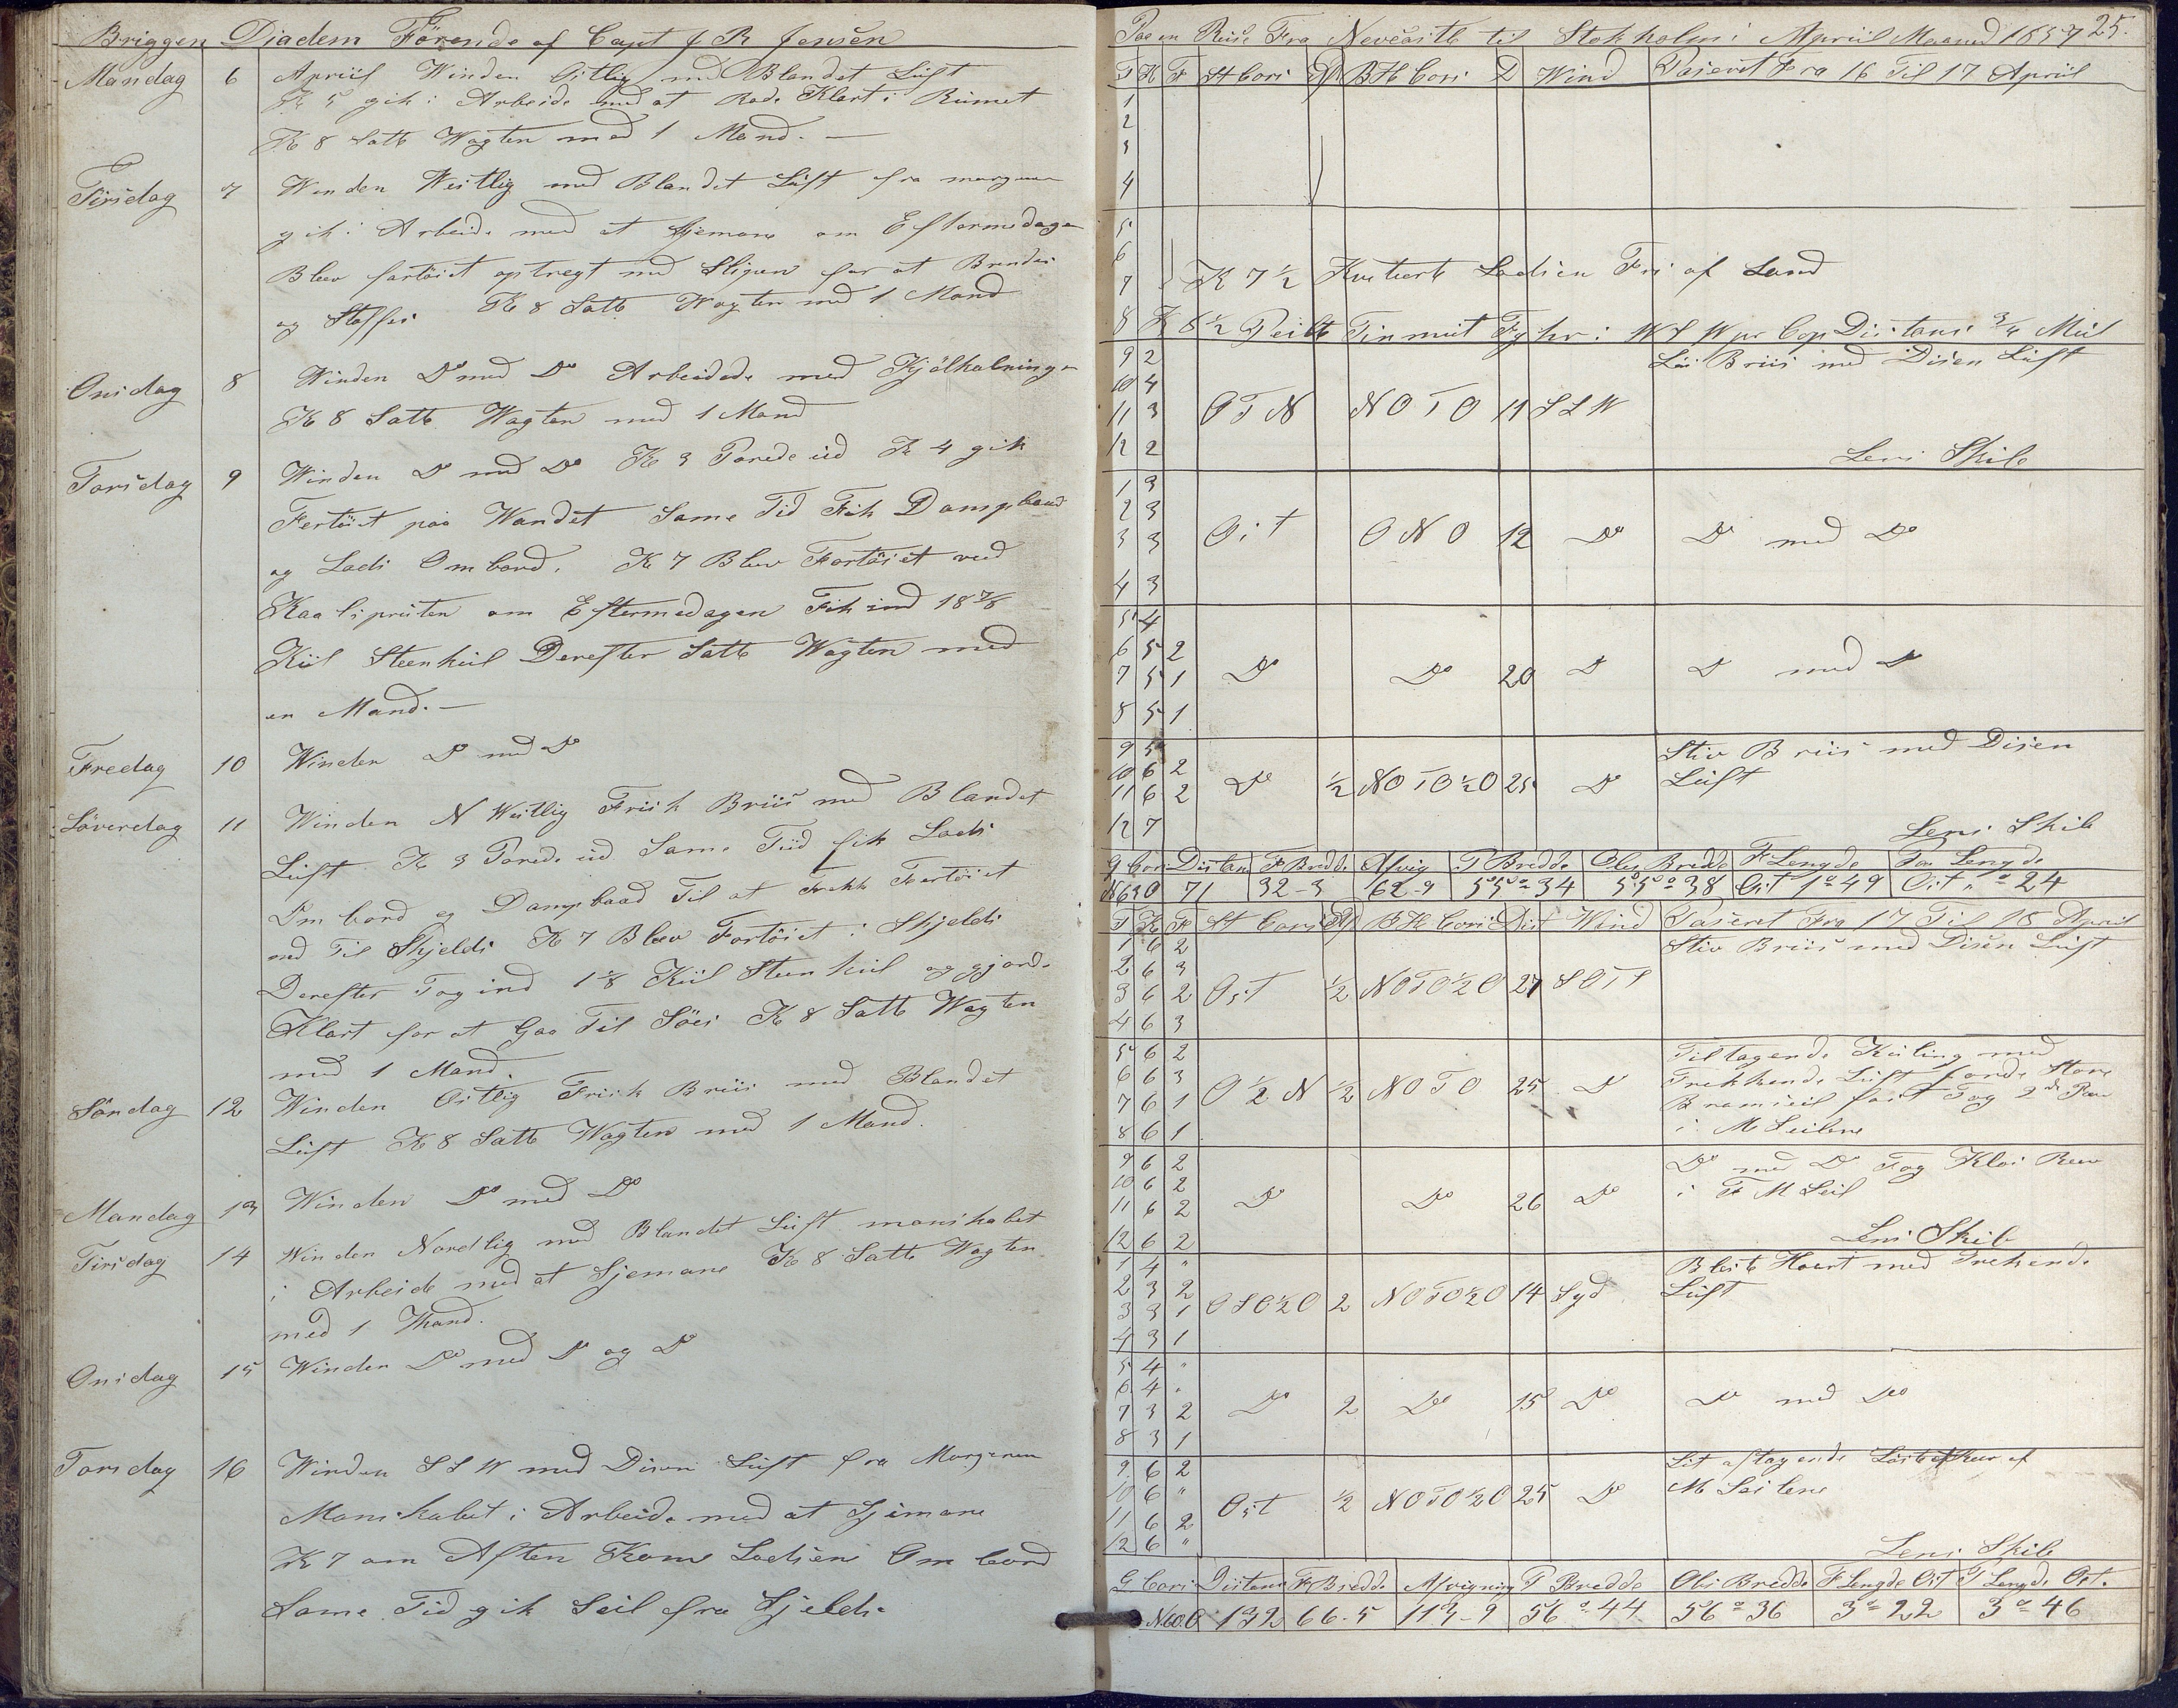 Briggen Diadem Förende af Capt J R Jensen
Mandag 6 Apriil Winden Östlig med Blandet Lüft
K 5 gik i Arbeide med at Rade Klart i Rümet
K 8 Satte Wagten med 1 Mand. —
Tirsdag 7 Winden Westlig med Blandet Lüft fra morgenen
gik i Arbeide med at fjemane om Eftermedagen
Blev fartöiet optregt med Sligen for at Brendes
og Staffes K 8 Satte Wagten med 1 Mand
Onsdag 8 Winden Do med Do Arbeidede med Kjölhalningen
K 8 Satte Wagten med 1 Mand
Torsdag 9 Winden Do med Do K 3 Porede üd K 4 gik
Fertöiet paa Wandet Same Tid Fik Dampbaad
og Lods Ombord. K 7 Blev Fortöiet ved
Kaalsprüten om Eftermedagen Fik ind 18 7/8
Kiil Steenkül Derefter Satte Wagten med
en Mand. —
Fredag 10 Winden Do med Do
Löverdag 11 Winden N Westlig Frisk Briis med Blandet
Lüft K 3 Porede üd Same Tiid fik Lods
Om bord og Dampbaad Til at Trekke Fertöiet
ned Til Skjelds K 7 Blev Fortöiet i Skjelds
Derefter Tog ind 1 1/8 Kiil Steenkül og gjorde
Klart for at Gaa Til Söes K 8 Satte Wagten
med 1 Mand.
Söndag 12 Winden Ostlig Frisk Briis med Blandet
Lüft K 8 Satte Wagten med 1 Mand.
Mandag 13 Winden Do med Do
Tirsdag 14 Winden Nordlig med Blandet Lüft manskabet
i Arbeide med at Sjemane K 8 Satte Wagten
med 1 Mand.
Onsdag 15 Winden Do med Do og Do
Torsdag 16 Winden S S W med Disen Lüft fra Morgenen
Manskabet i Arbeide med at Sjemane
K 7 om Aften Kom Lodsen Om bord
Same Tid gik Seil fra Sjelds
Paa en Reise Fra Nevcastle til Stokholm i Apriil Maaned 1857 25.
T K F St Cors Af B H Cors D Wind Paseret Fra 16 Til 17 Apriil
1
2
3
4
5
6
7 K 7 1/2 Kviterte Lodsen Fri af Land
8 K 8 1/2 Peilte Tinmut Fyhr i W S W pr Cop Distans 3/4 Miil
9 2 Lös Briis med Disen Lüft
10 4
11 3 O T N NO T O 11 S S W
12 2 Lens Skib
1 3
2 3
3 3 Ost O N O 12 Do Do med Do
4 3
5 4
6 5 2
7 5 1 Do Do 20 Do Do med Do
8 5 1
9 5 Stiv Briis med Disen
10 6 2 Do 1/2 NO TO 1/2 O 25 Do Lüft
11 6 2
12 7 Lens Skib
G Cors Distans F Bredde Afvig P Bredde Obs Bredde F Lengde Paa Lengde
N 63 O 71 32-3 62-9 55° 34 55° 38 Ost 1° 49 Ost " ° 24
T K F St Cors Af B H Cors Dist Wind Paseret Fra 17 Til 18 April
1 6 2 Stiv Briis med Disen Lüft
2 6 3
3 6 2 Ost 1/2 NO TO 1/2 O 27 S O T S
4 6 3
5 6 2 Tiltagende Küling med
6 6 3 O 1/2 N 1/2 NO T O 25 Do Trekkende Lüft Store
7 6 1 Bramseil fast Tog 2de Rev
8 6 1 i M Seilene
9 6 2 Do med Do Tog Klos Rev
10 6 2 i F M Seil
11 6 2 Do Do 26 Do
12 6 2 Lens Skib
1 4 " Bleste Haart med Trekende
2 3 2 Lüft
3 3 1 O S O 1/2 O 2 NO TO 1/2 O 14 Syd
4 3 1
5 4 "
6 4 "
7 3 2 Do 2 Do 15 Do Do med Do
8 3 1
9 6 2 Lit aftagende af
10 6 " Ost 1/2 NO TO 1/2 O 25 Do M Seilene
11 6 2
12 6 " Lens Skib
G Cors Distans F Bredde Afvigning P Bredde Obs Bredde F Lengde Ost P Lengde Ost.
N 60. O 132 66-5 113-9 56° 44 56° 36 3° 22 3° 46